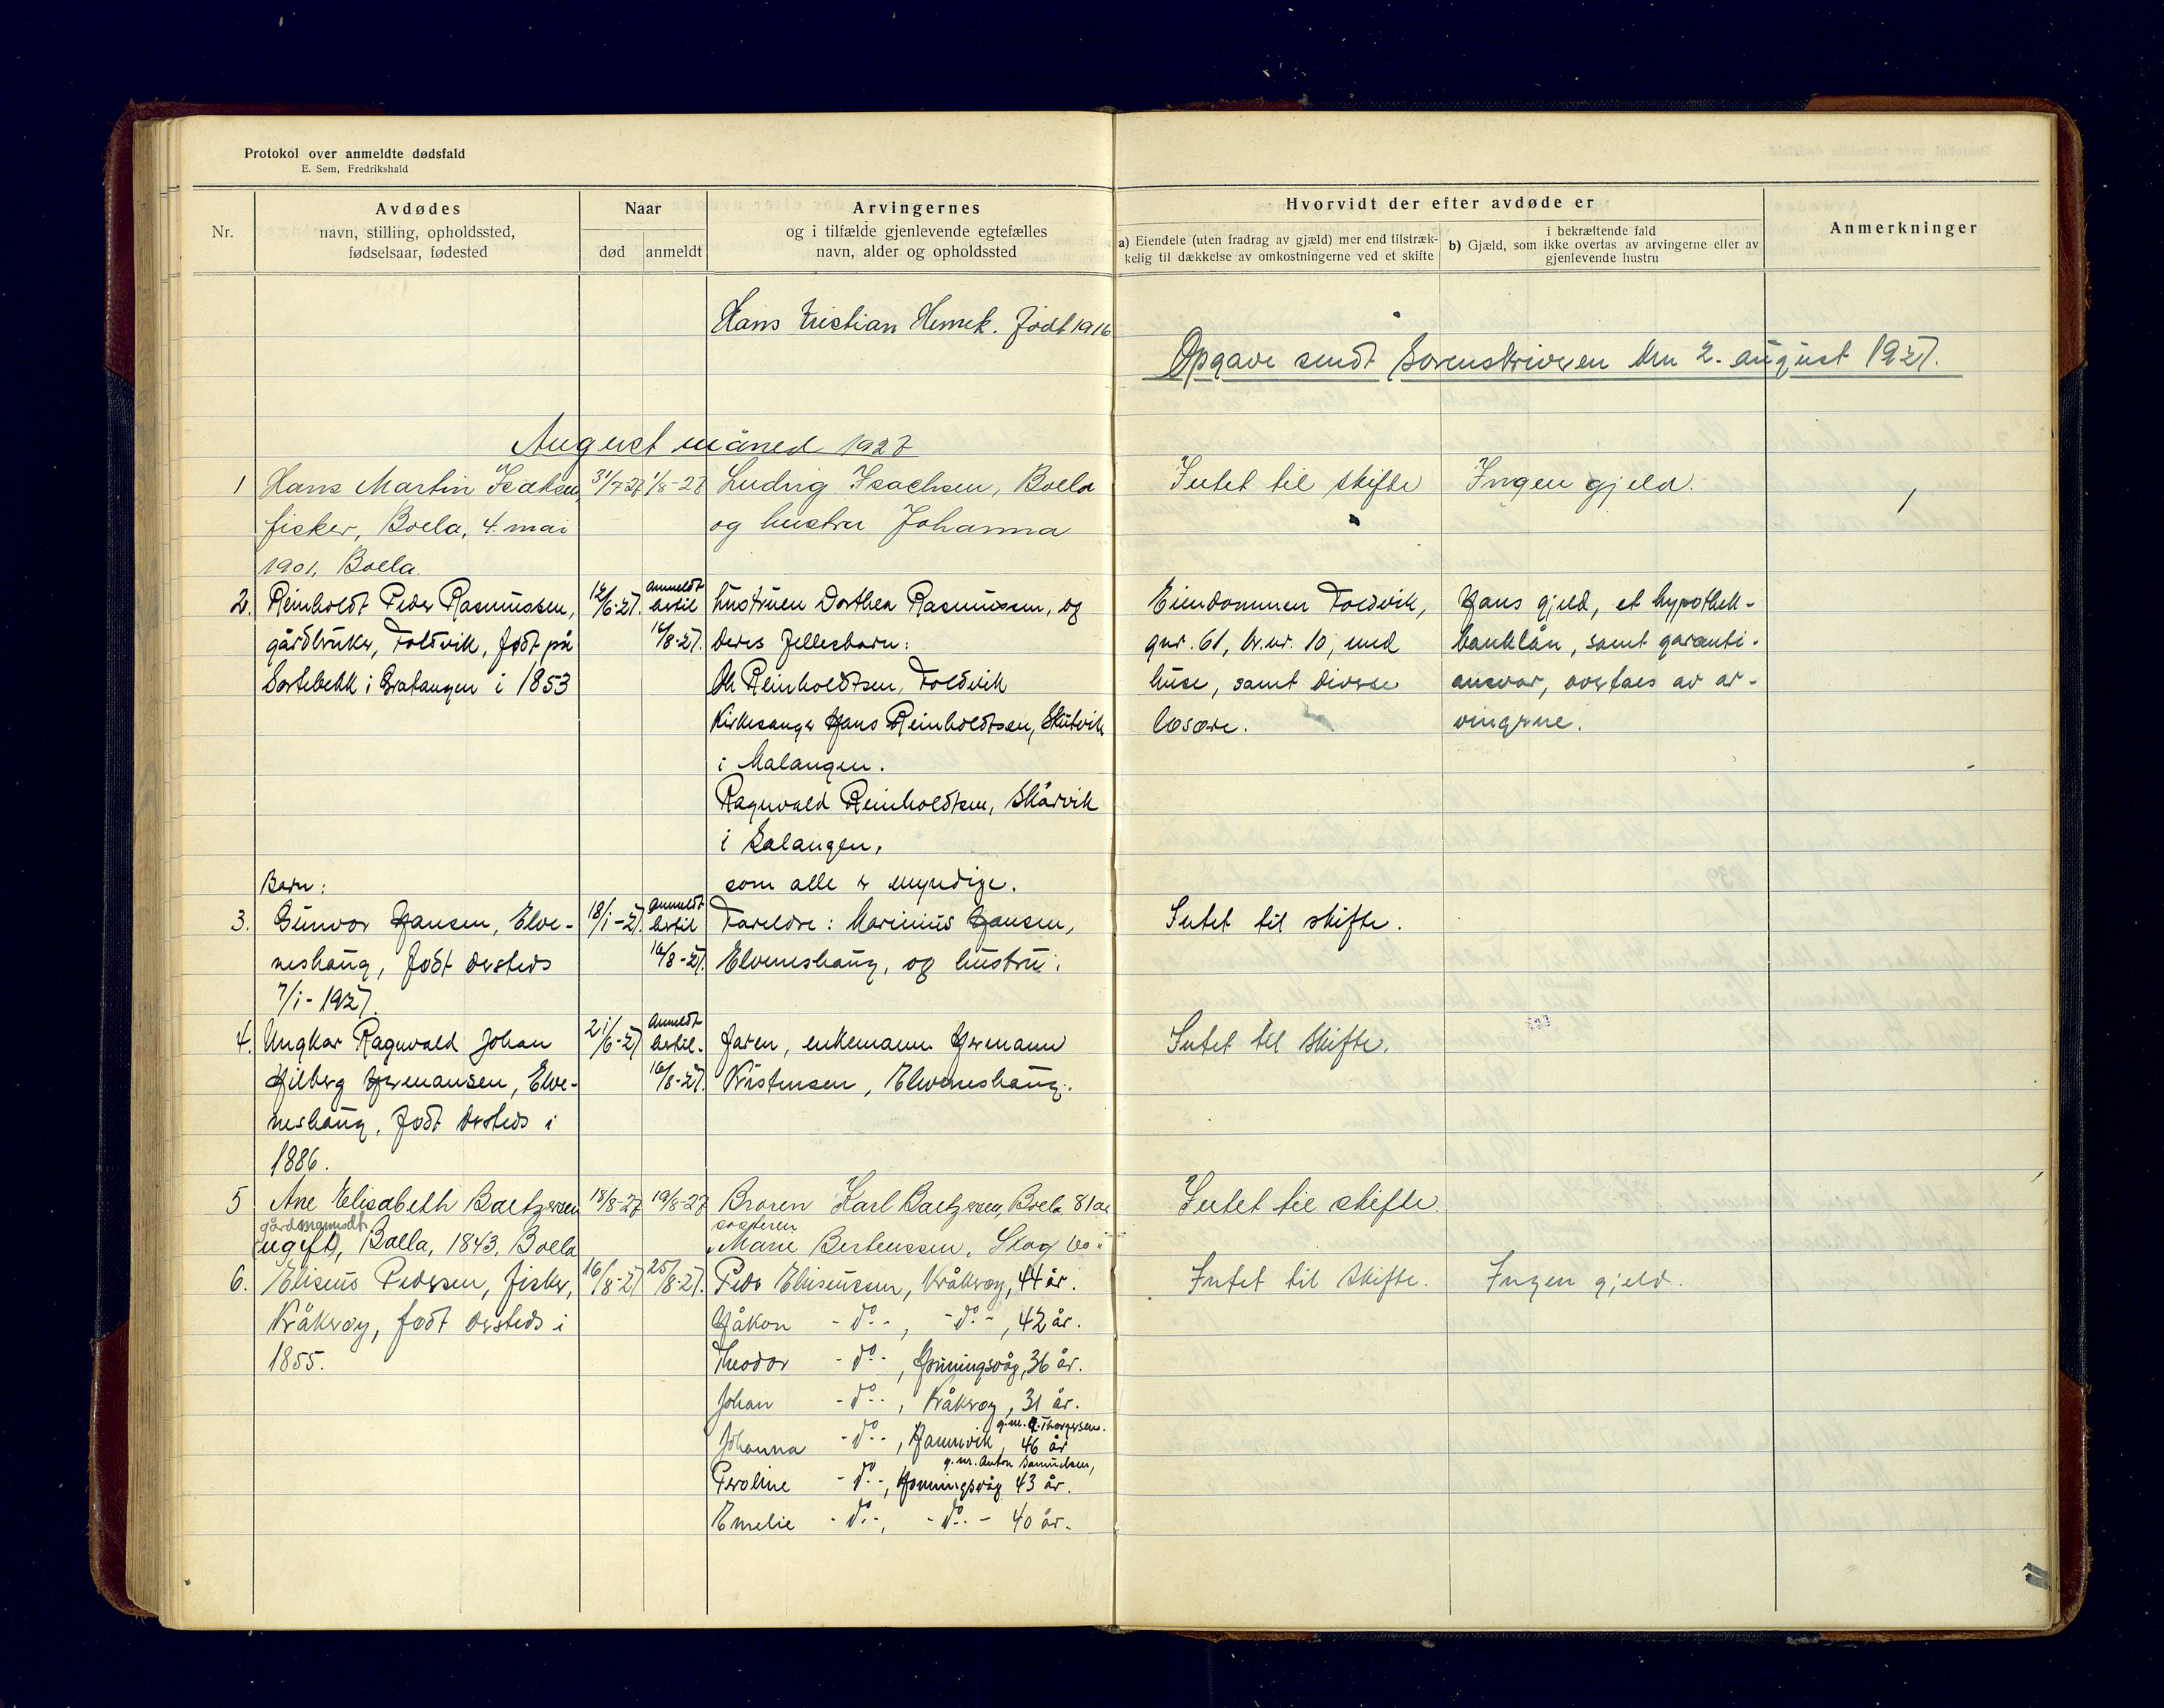 Protokol over anmeldte dødsfald
E. Sem, Fredrikshald
Nr.
Avdødes
navn, stilling, opholdssted,
fødselsaar, fødested
Naar
død
anmeldt
Arvingernes
og i tilfælde gjenlevende egtefælles
navn, alder og opholdssted
Hvorvidt der efter avdøde er
a) Eiendele (uten fradrag av gjæld) mer end tilstræk-
kelig til dækkelse av omkostningerne ved et skifte
i bekræftende fald
b) Gjæld, som ikke overtas av arvingerne eller av
gjenlevende hustru
Anmerkninger
Hans Kristian Henrek. Født 1916
Opgave sendt Sorenskriveren den 2. august 1927.
August måned 1927
1 Hans Martin Isaksen
fisker, Boela, 4. mai
1901, Boela.
31/7-27 1/8-27
Ludvig Isachsen, Boela
og hustru Johanna
Intet til skifte
Ingen gjeld.
2. Reinholdt Peder Rasmussen,
gårdbruker, Foldvik, født på
Sortebekk i Gratangen i 1853
12/6-27. anmeldt
hertil
16/8-27.
hustruen Dorthea Rasmussen, og
deres fellesbarn:
Ole Reinholdtsen, Foldvik
Kirkesanger Hans Reinholdtsen, Skutvik
i Malangen.
Ragnvald Reinholdtsen, Skårvik
i Salangen,
som alle er myndige.
Eiendommen Foldvik,
gnr. 61, br.nr. 10, med
huse, samt diverse
løsøre.
Hans gjeld, et hypothek-
banklån, samt garanti-
ansvar, overtaes av ar-
vingerne.
Barn:
3. Gunvor Hansen, Elve-
neshaug, født dersteds
7/1-1927.
18/1-27. anmeldt
hertil
16/8-27.
Foreldre: Marinius Hansen,
Elveneshaug, og hustru.
Intet til skifte.
4. Ungkar Ragnvald Johan
Hilberg Hermansen, Elve-
neshaug, født dersteds i
1886.
21/6-27 anmeldt
hertil.
16/8-27.
Faren, enkemann Hermann
Kristensen, Elveneshaug.
Intet til skifte.
5 Ane Elisabeth Baltzersen
gårdmannsdt.
(ugift), Boela, 1843, Boela
18/8-27 19/8-27
Broren Karl Baltzersen, Boela 81 år
søsteren
Marie Berteussen, Skog
Intet til skifte.
6. Eliseus Pedersen, fisker,
Kråkrøy, født dersteds i
1855.
16/8-27 25/8-27.
Peder Eliseussen, Kråkrøy, 44 år.
Håkon - do -, - do -, 42 år.
Theodor - do -, Honningsvåg, 36 år.
Johan - do -, Kråkrøy, 31 år.
g.m. A. Thorgersen.
Johanna - do -, Hamnvik, 46 år
g.m. Anton Samuelsen,
Peroline - do -, Honningsvåg 43 år.
Emelie - do -, - do - 40 år.
Intet til skifte.
Ingen gjeld.